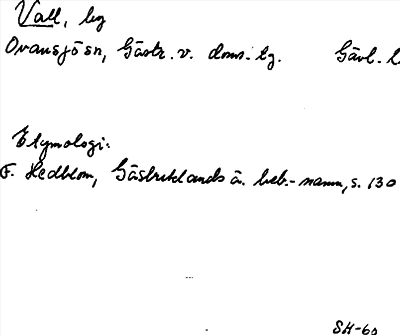 Vall, by
Ovansjö sn, Gästr. v. doms.-tg. Gävl. l.
Etymologi:
F. Hedblom, Gästriklands ä. beb.-namn, s. 130
SH-60